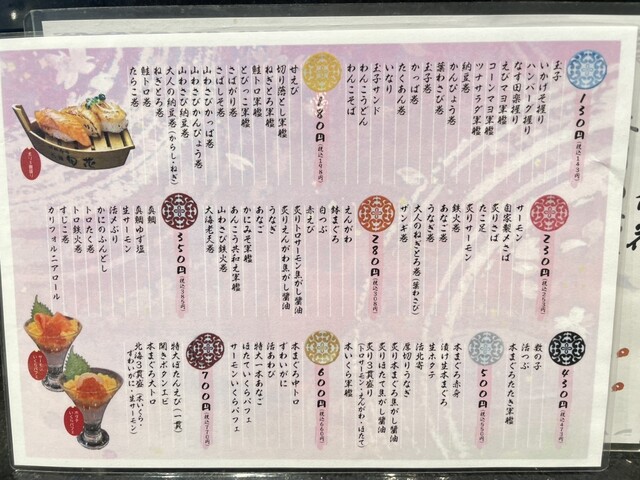 130円(税込143円)
玉子
いかげそ握り
ハンバーグ握り
なす田楽握り
えびマヨ軍艦
コーンマヨ軍艦
ツナサラダ軍艦
納豆巻
かんぴょう巻
葉わさび巻
玉子巻
たくあん巻
かっぱ巻
いなり
玉子サンド
わんこうどん
わんこそば
180円(税込198円)
甘えび
切り落とし軍艦
ねぎトロ軍艦
鮭トロ軍艦
とびっこ軍艦
さばがり巻
さばしそ巻
山わさびかっぱ巻
山わさびかんぴょう巻
山わさび納豆巻
大人の納豆巻(からし・ねぎ)
ねぎとろ巻
鮭トロ巻
たらこ巻
230円(税込253円)
サーモン
自家製〆さば
炙りさば
たこ足
炙りサーモン
鉄火巻
あなご巻
うなぎ巻
大人のねぎとろ巻(葉わさび)
ザンギ巻
280円(税込308円)
えんがわ
鉢まぐろ
白つぶ
赤えび
炙りトロサーモン焦がし醤油
炙りえんがわ焦がし醤油
うなぎ
あなご
かにみそ軍艦
あんこう共和え軍艦
山わさび鉄火巻
大海老天巻
350円(税込385円)
真鯛
真鯛ゆず塩
生サーモン
活〆ぶり
かにのふんどし
トロたく巻
トロ鉄火巻
すじこ巻
カリフォルニアロール
430円(税込473円)
数の子
活つぶ
本まぐろたたき軍艦
500円(税込550円)
本まぐろ赤身
漬け生本まぐろ
生ホタテ
活北寄
厚切りうなぎ
炙り本まぐろ焦がし醤油
炙りほたて焦がし醤油
炙り3貫盛り
(トロサーモン・えんがわ・ほたて)
本いくら軍艦
600円(税込660円)
本まぐろ中トロ
ずわいがに
活あわび
特大一本あなご
ほたていくらパフェ
サーモンいくらパフェ
700円(税込770円)
特大ぼたんえび(一貫)
開きボタンエビ
本まぐろ大トロ
北海3貫盛り(本いくら・
ずわいがに・生サーモン)